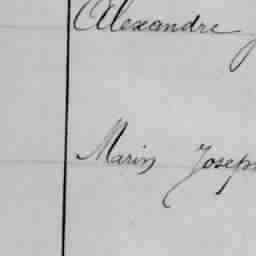 Alexandre
Marin Joseph